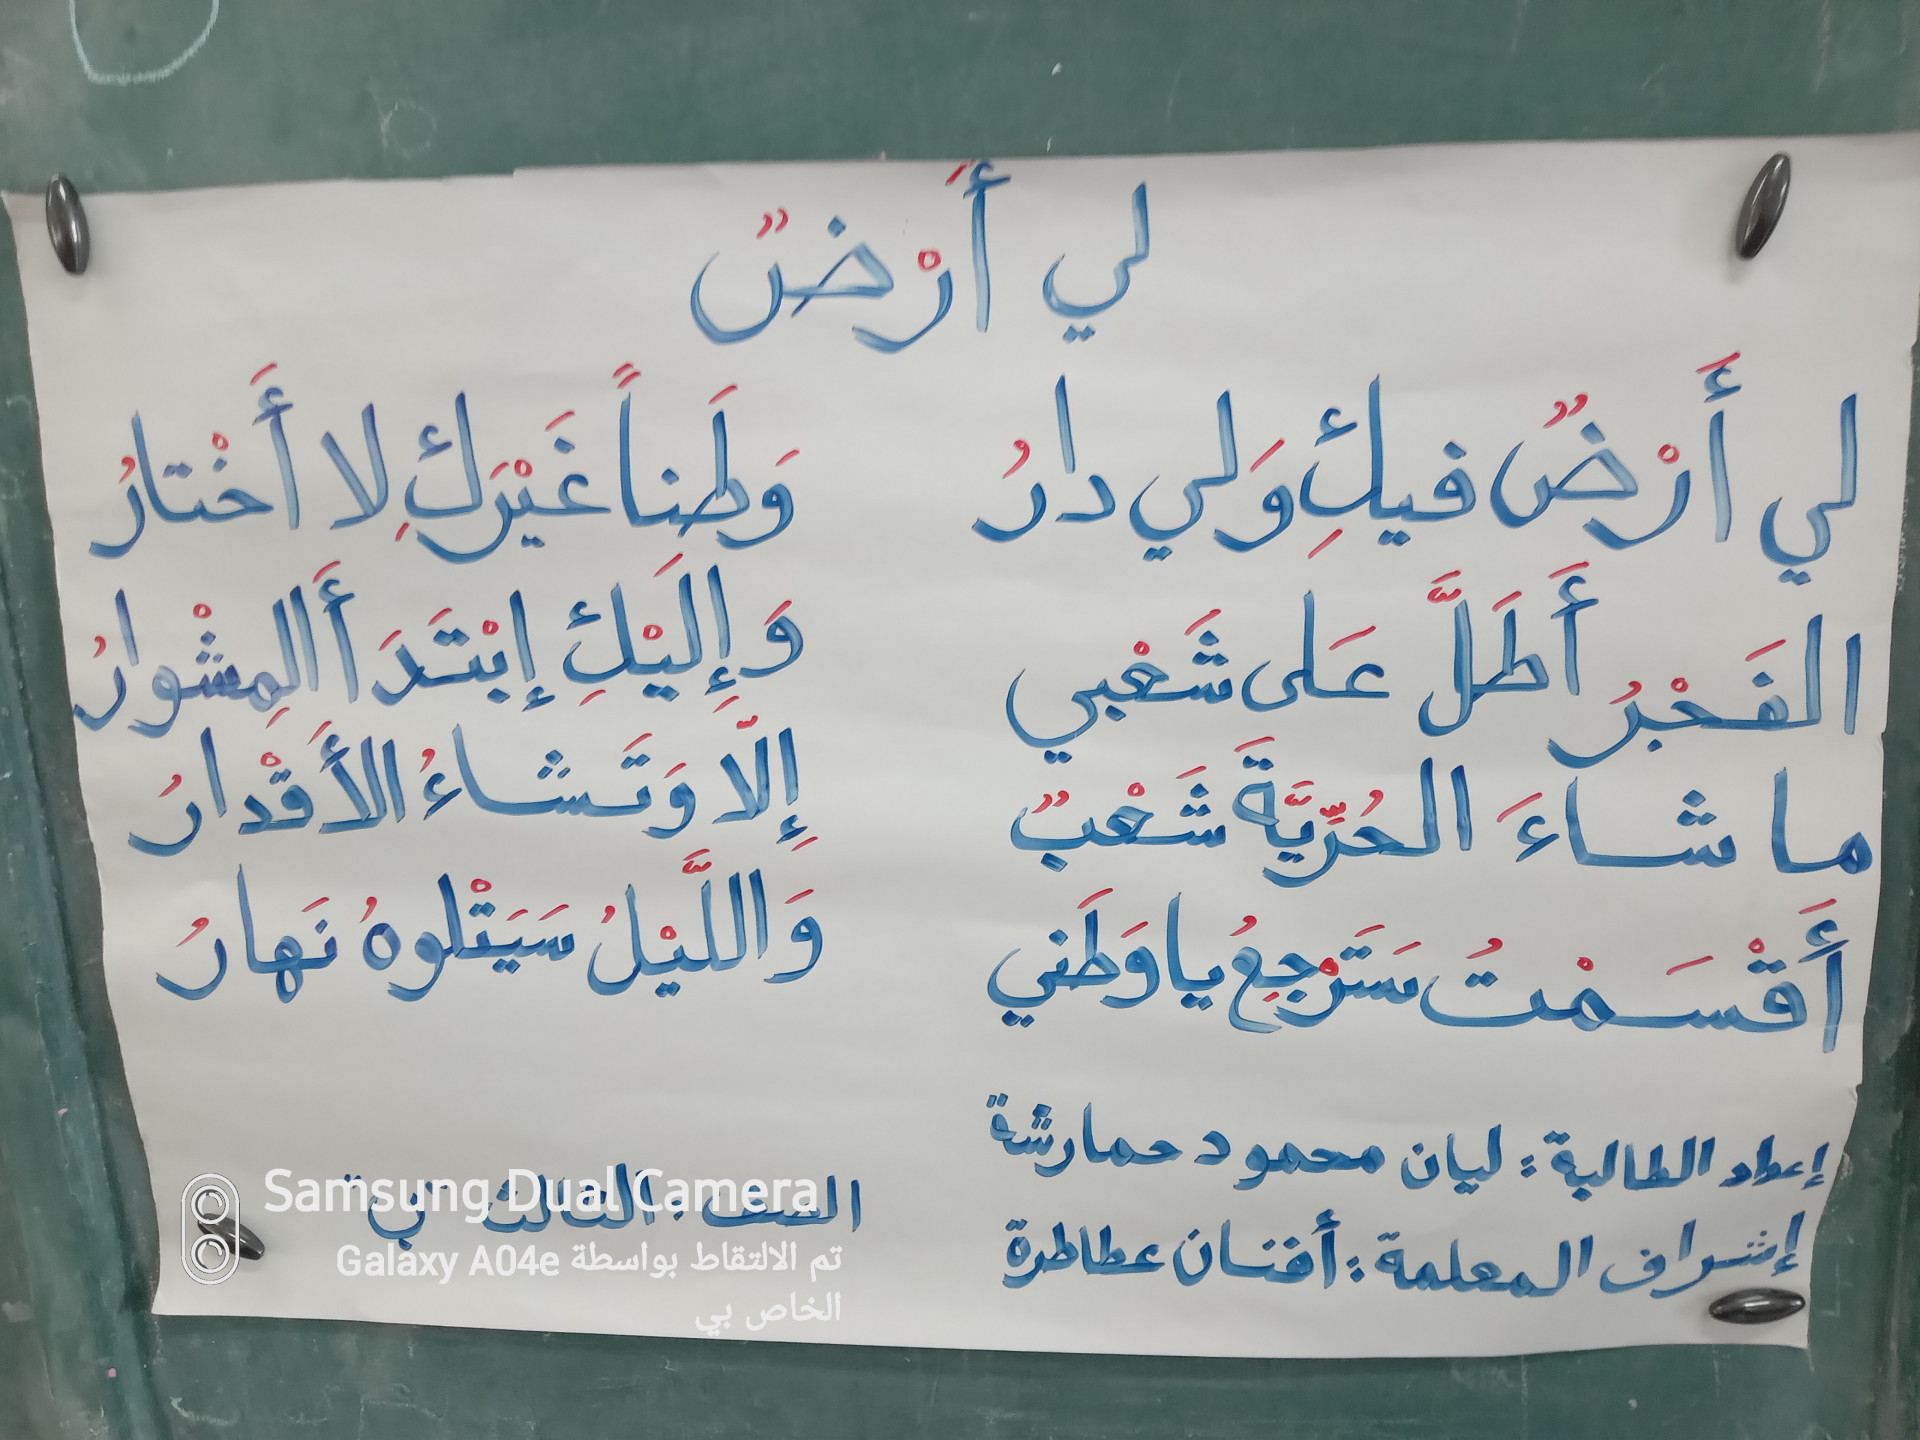 لي أَرْضٌ
لي أَرْضٌ فيكِ وَلي دارُ وَطَناً غَيْرَكِ لا أَخْتارُ
الفَجْرُ أَطَلَّ عَلى شَعْبي وَإِلَيْكِ إبْتَدَأَ المِشْوارُ
ما شاءَ الحُرِّيَّةَ شَعْبٌ إِلّا وَتَشاءُ الأَقْدارُ
أَقْسَمْتُ سَتَرْجِعُ يا وَطَني وَاللَّيْلُ سَيَتْلوهُ نَهارُ
إعداد الطالبة: ليان محمود حمارشة
الصف: الثالث "ب"
إشراف المعلمة: أفنان عطاطرة
Samsung Dual Camera
تم الالتقاط بواسطة Galaxy A04e
الخاص بي